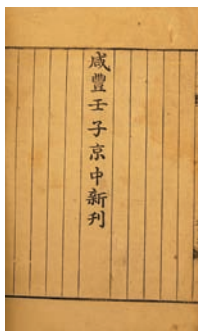 咸豐壬子京中新刊